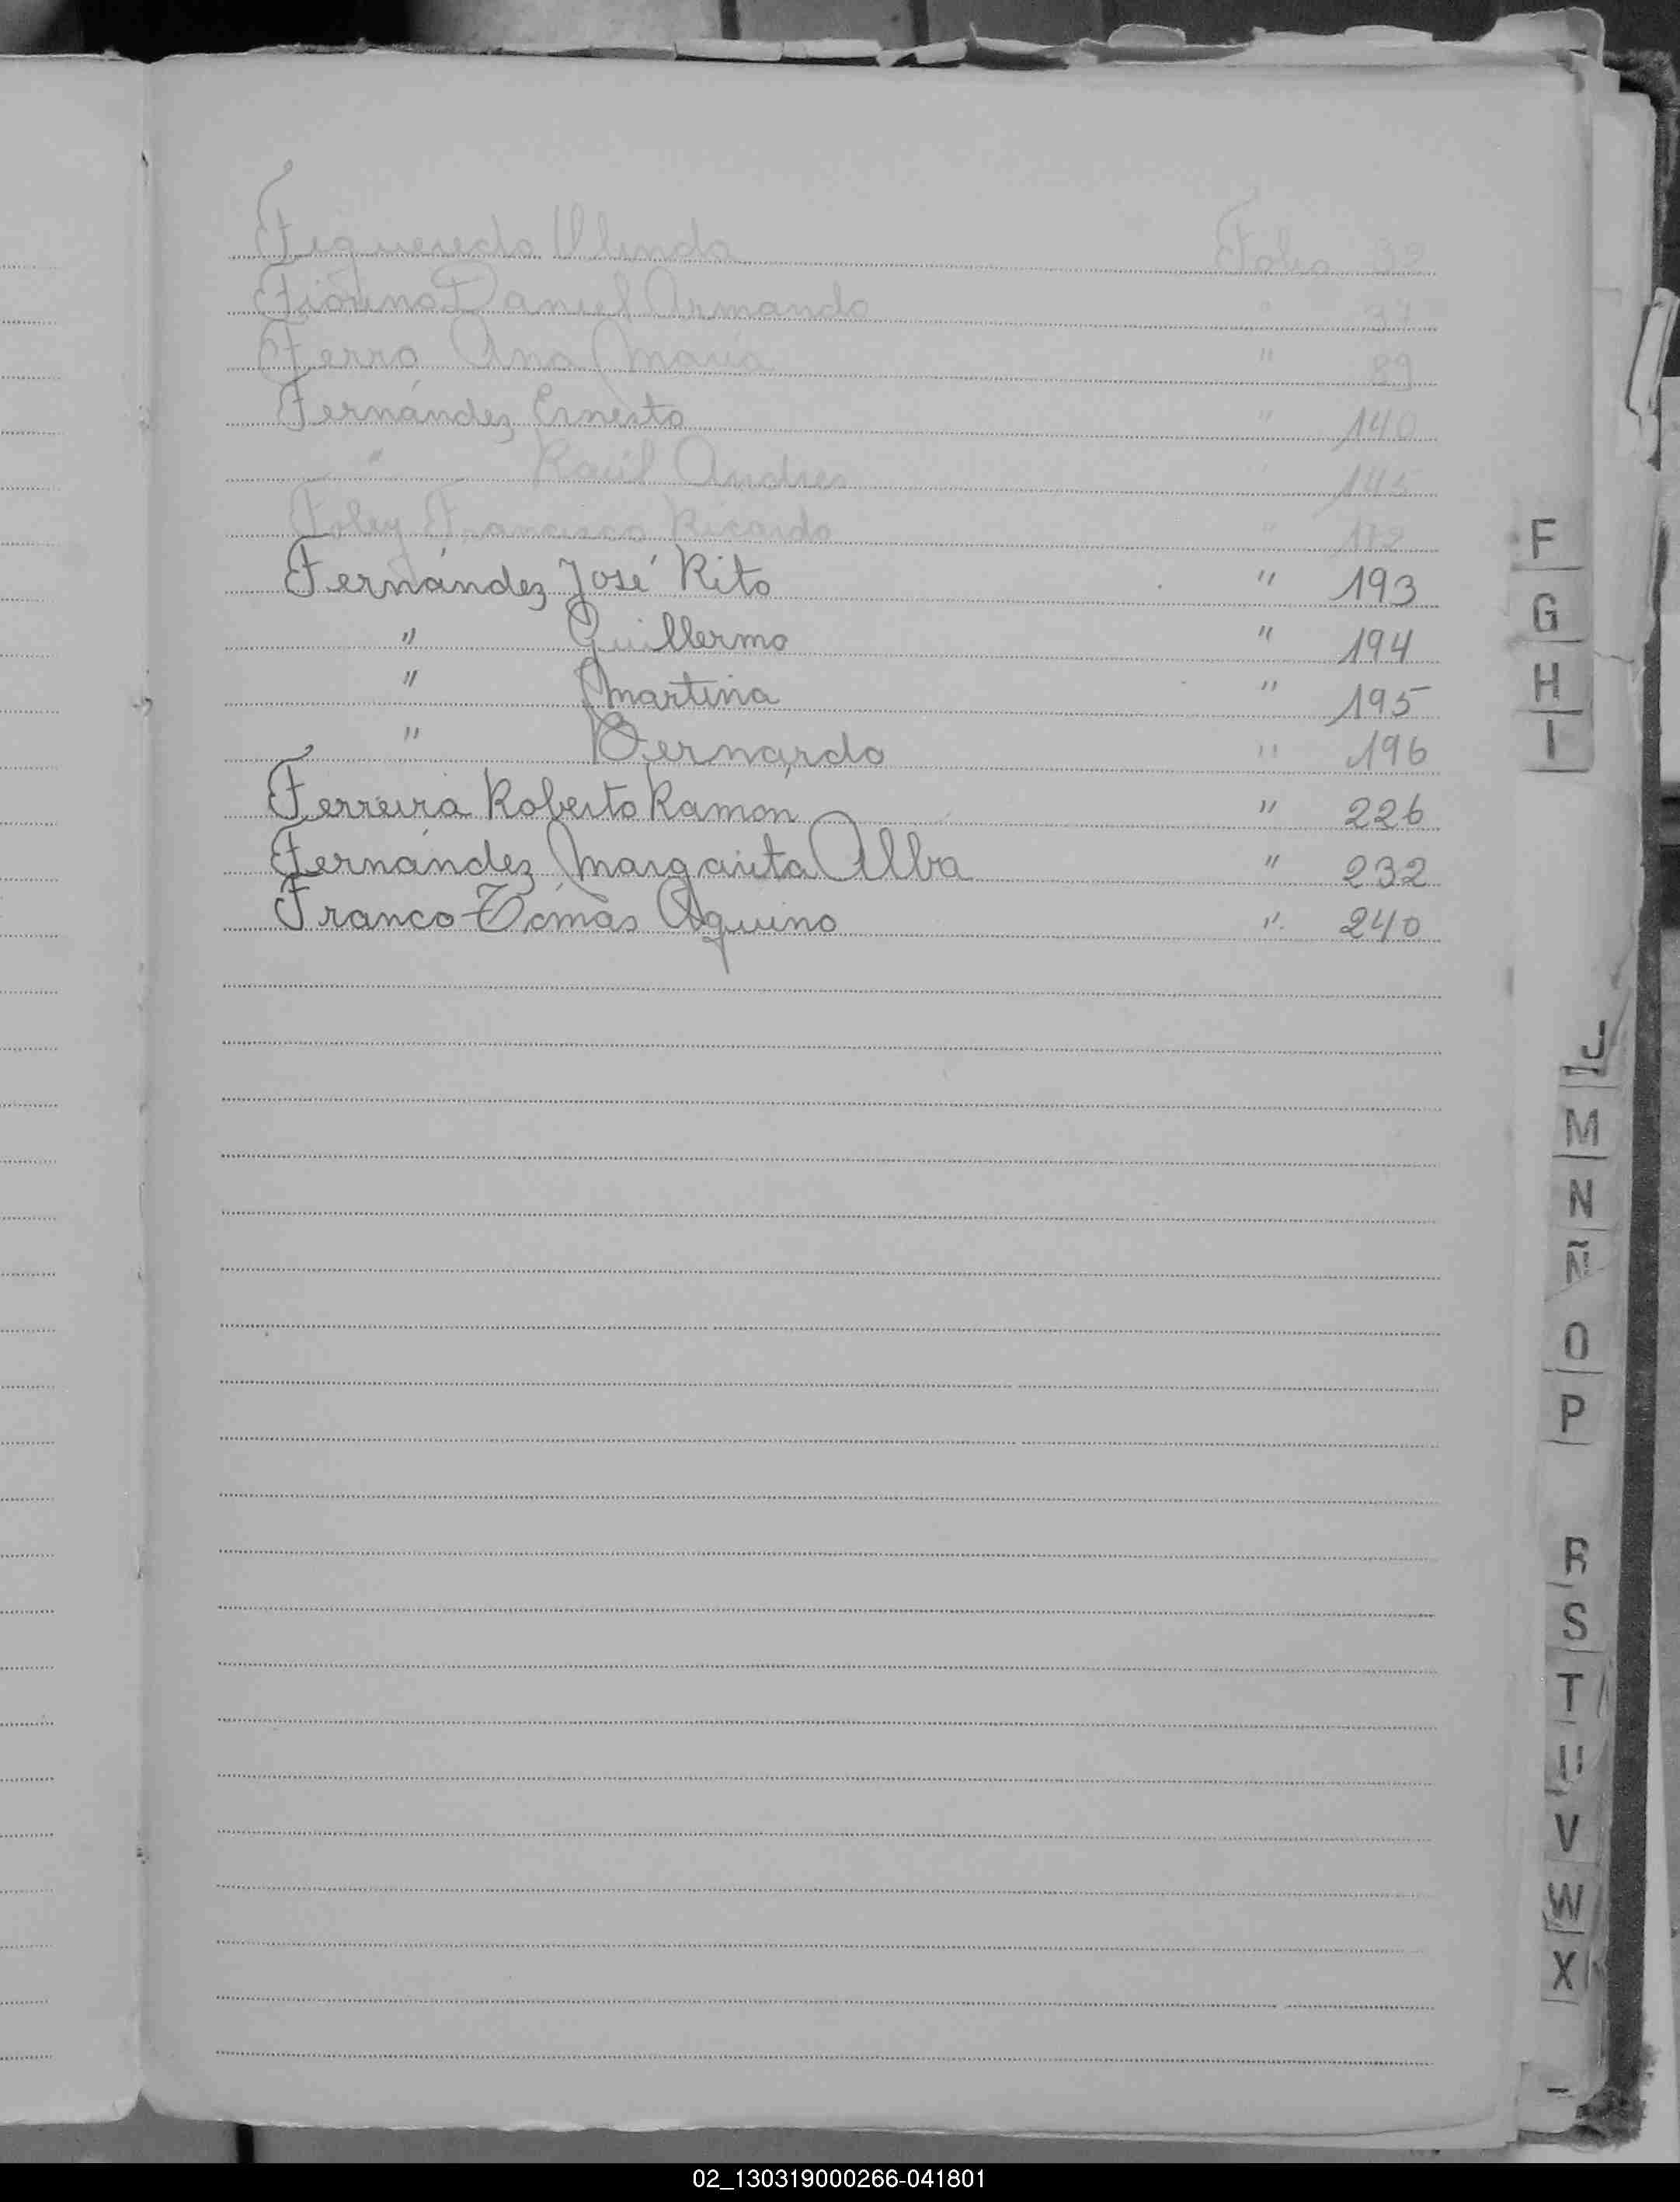 Figueredo Olinda Folio 32
Fiorino Daniel Armando " 37
Ferro Ana María " 89
Fernández Ernesto " 140
" Raúl Andres " 145
Foley Francisco Ricardo " 172
Fernández José Rito " 193
" Guillermo " 194
" Martina " 195
" Bernardo " 196
Ferreira Roberto Ramón " 226
Fernández Margarita Alba " 232
Franco Tomás Aquino " 240
F
G
H
I
J
M
N
Ñ
O
P
R
S
T
U
V
W
X
02_130319000266-041801